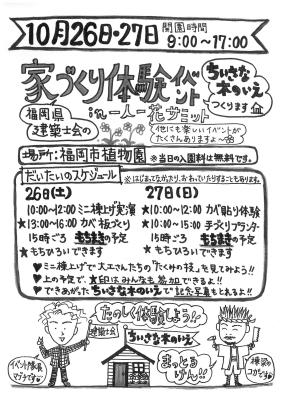 10月26日・27日 開園時間 9:00〜17:00
家づくり体験イベント
ちいさな
木のいえ
つくります
福岡県
建築士会の
in 一人一花サミット
他にも楽しいイベントが
たくさんありますよ〜
場所:福岡市植物園 ※当日の入園料は無料です。
だいたいのスケジュール
※はじまる
26日(土)
10:00〜12:00 ミニ棟上げ実演
★13:00〜16:00 カベ板づくり
15時ごろ もちまきの予定
★もちひろいできます
27日(日)
★10:00〜12:00 カベ貼り体験
★10:00〜15:00 手づくりプランター
15時ごろ もちまきの予定
★もちひろいできます
♥ミニ棟上げで大工さんたちの「たくみの技」を見てみよう!!
♥上の予定で、★印はみんなも参加できるよ!!
♥できあがったちいさな木のいえで記念写真もとれるよ!!
たのしく体験しよう!!
建築士会
ちいさな木のいえ
まっとるけん!!
イベント隊長
マテナです
棟梁の
コガです